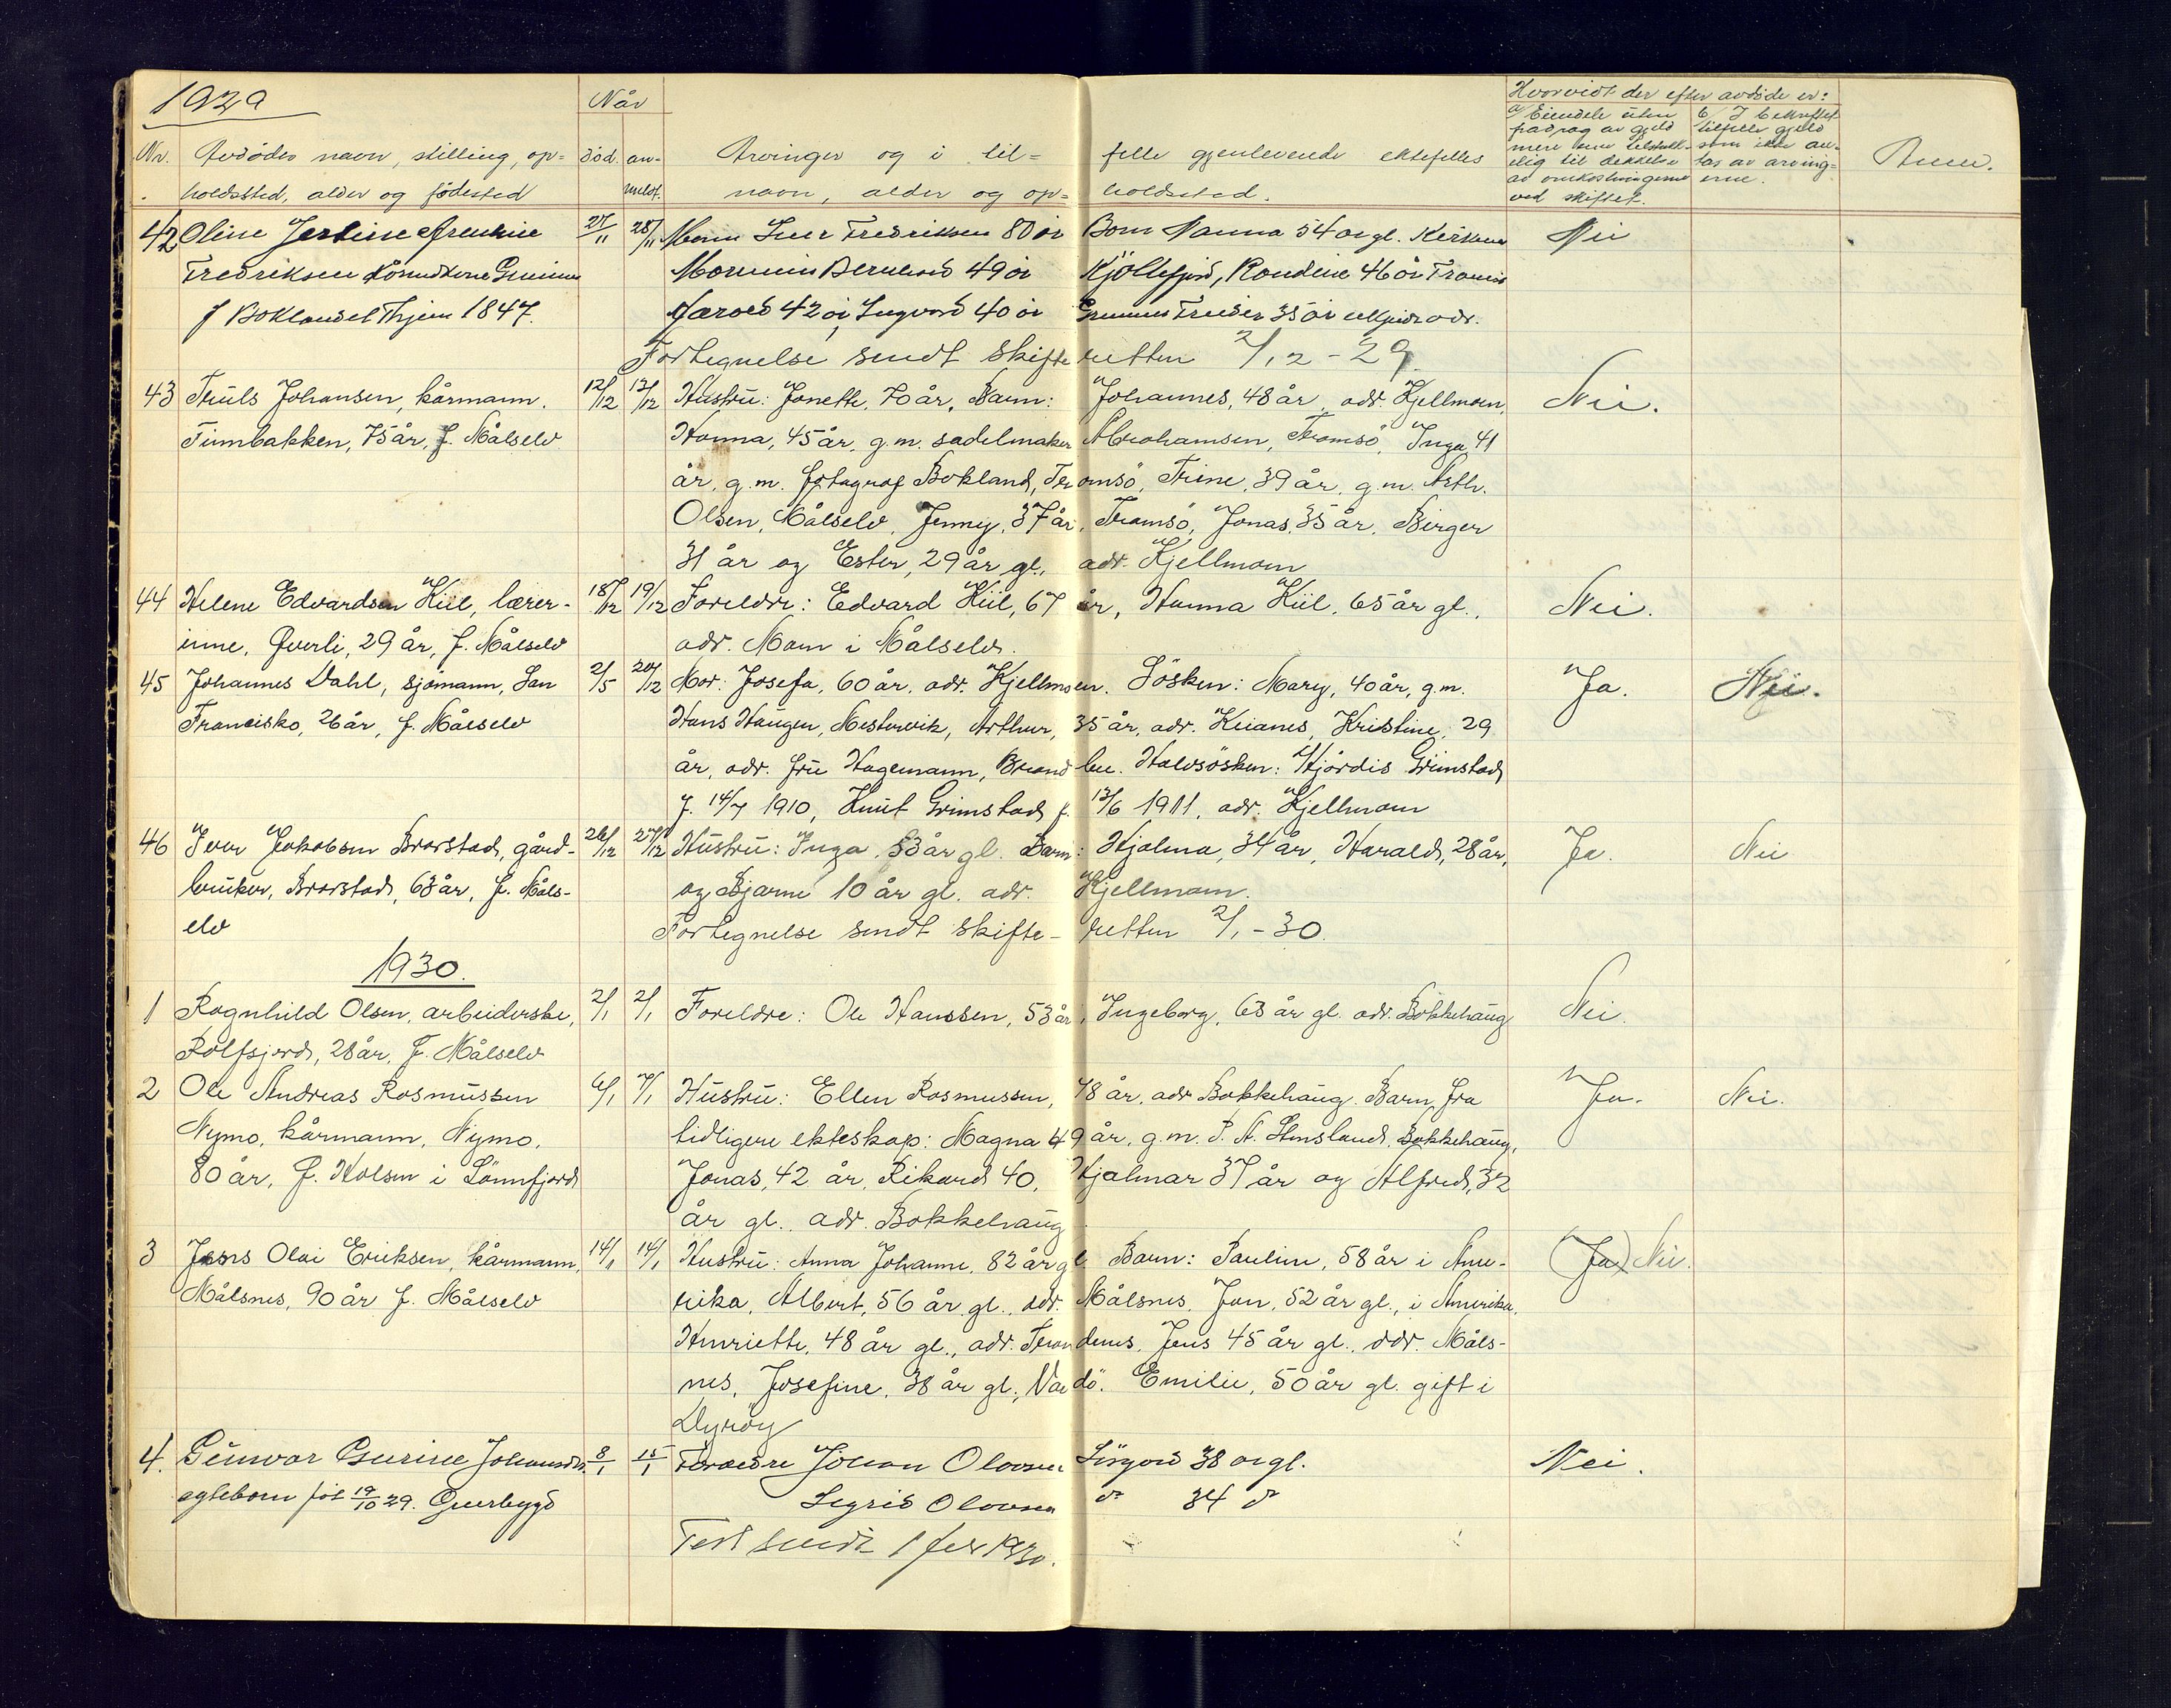 1929
Når
Hvorvidt der efter avdöde er:
Nr. Avdödes navn, stilling, op- död. an- Arvinger og i til- felle gjenlevende ektefelles
a/ Eiendele uten fradrag av gjeld mere enn tilstrekkelig til dekkelse av omkostningerne ved skiftet.
b/ I bekreftet tilfelle gjeld som ikke antas av arvingerne.
Anm.
holdssted, alder og födested meldt. navn, alder og op- holdssted.
42 Oline 27/11 28/11 Mann Iver Fredriksen 80 år Barn Nanna 54 år gl. Kirkenes Nei
Fredriksen Bernhard 49 år Kjöllefjord, 46 år Tromsö
f 1847. 42 år, Ingvard 40 år 35 år
Fortegnelse sendt skifteretten 2/12 - 29.
43 Truls Johansen, kårmann. 12/12 13/12 Hustru: Jonette, 70 år, Barn: Johannes, 48 år, adr. Kjellmoen, Nei.
Finnbakken, 75 år, f. Målselv Hanna, 45 år, g.m. sadelmaker Abrahamsen, Tromsö, Inga, 41
år, g.m. fotograf Bokland, Tromsö, Trine, 39 år, g.m. Arth.
Olsen, Målselv, Jenny, 37 år, Tromsö, Jonas, 35 år, Birger
31 år og Ester, 29 år gl., adr. Kjellmoen
44 Helene Edvardsen Kiil, lærer- 18/12 19/12 Foreldre: Edvard Kiil, 67 år, Hanna Kiil, 65 år gl., Nei.
inne, Överli, 29 år, f. Målselv adr. Moen i Målselv.
45 Johannes Dahl, sjömann, San 2/5 20/12 Mor: Josefa, 60 år, adr. Kjellmoen. Sösken: Mary, 40 år, g.m. Ja. Nei.
Francisko, 26 år, f. Målselv Hans Haugen, Mestervik, Arthur, 35 år, adr. Kianes, Kristine, 29
år, adr. fru Hagemann, Brandbu. Halvsösken: Hjördis Grimstad
f. 14/7 1910, Knut Grimstad f. 13/6 1911, adr. Kjellmoen
46 Iver Jakobsen Brorstad, gård- 26/12 27/12 Hustru: Inga, 53 år gl. Barn: Hjalma, 34 år, Harald, 28 år, Ja. Nei
bruker, Brorstad, 63 år, f. Måls- og Bjarne 10 år gl. adr. Kjellmoen.
elv Fortegnelse sendt skifte- retten 2/1 - 30.
1930.
1 Ragnhild Olsen, arbeiderske, 2/1 2/1 Foreldre: Ole Hanssen, 53 år, Ingeborg, 63 år gl. adr. Bokkehaug Nei.
Rolfsjord, 28 år, f. Målselv
2 Ole Andreas Rasmussen 6/1 7/1 Hustru: Ellen Rasmussen, 78 år, adr Bokkehaug. Barn fra Ja. Nei.
Nymo, kårmann, Nymo, tidligere ekteskap: Magna 49 år, g.m. P. A. Stensland, Bokkehaug,
80 år, f. Holsen i Sönnfjord Jonas, 42 år, Rikard 40, Hjalmar 37 år og Alfred, 32
år gl. adr. Bokkehaug
3 Jens Olai Eriksen, kårmann, 14/1 14/1 Hustru: Anna Johanne, 82 år gl. Barn: Pauline, 58 år i Ame- (Ja) Nei.
Målsnes, 90 år f. Målselv rika, Albert, 56 år gl., adr. Målsnes, Jon, 52 år gl., i Amerika,
Henriette, 48 år gl., adr. Trondenes, Jens 45 år gl., adr. Måls-
nes, Josefine, 38 år gl., Vardö. Emilie, 50 år gl. gift i
Dyröy
4. Gunvor Johansdtr. 8/1 15/1 Foreldre Johan Olavsen 38 år gl. Nei.
egtebarn föt 19/10 29. Överbygd Sigrid Olavsen do 34 do
sendt 1 febr 1930.